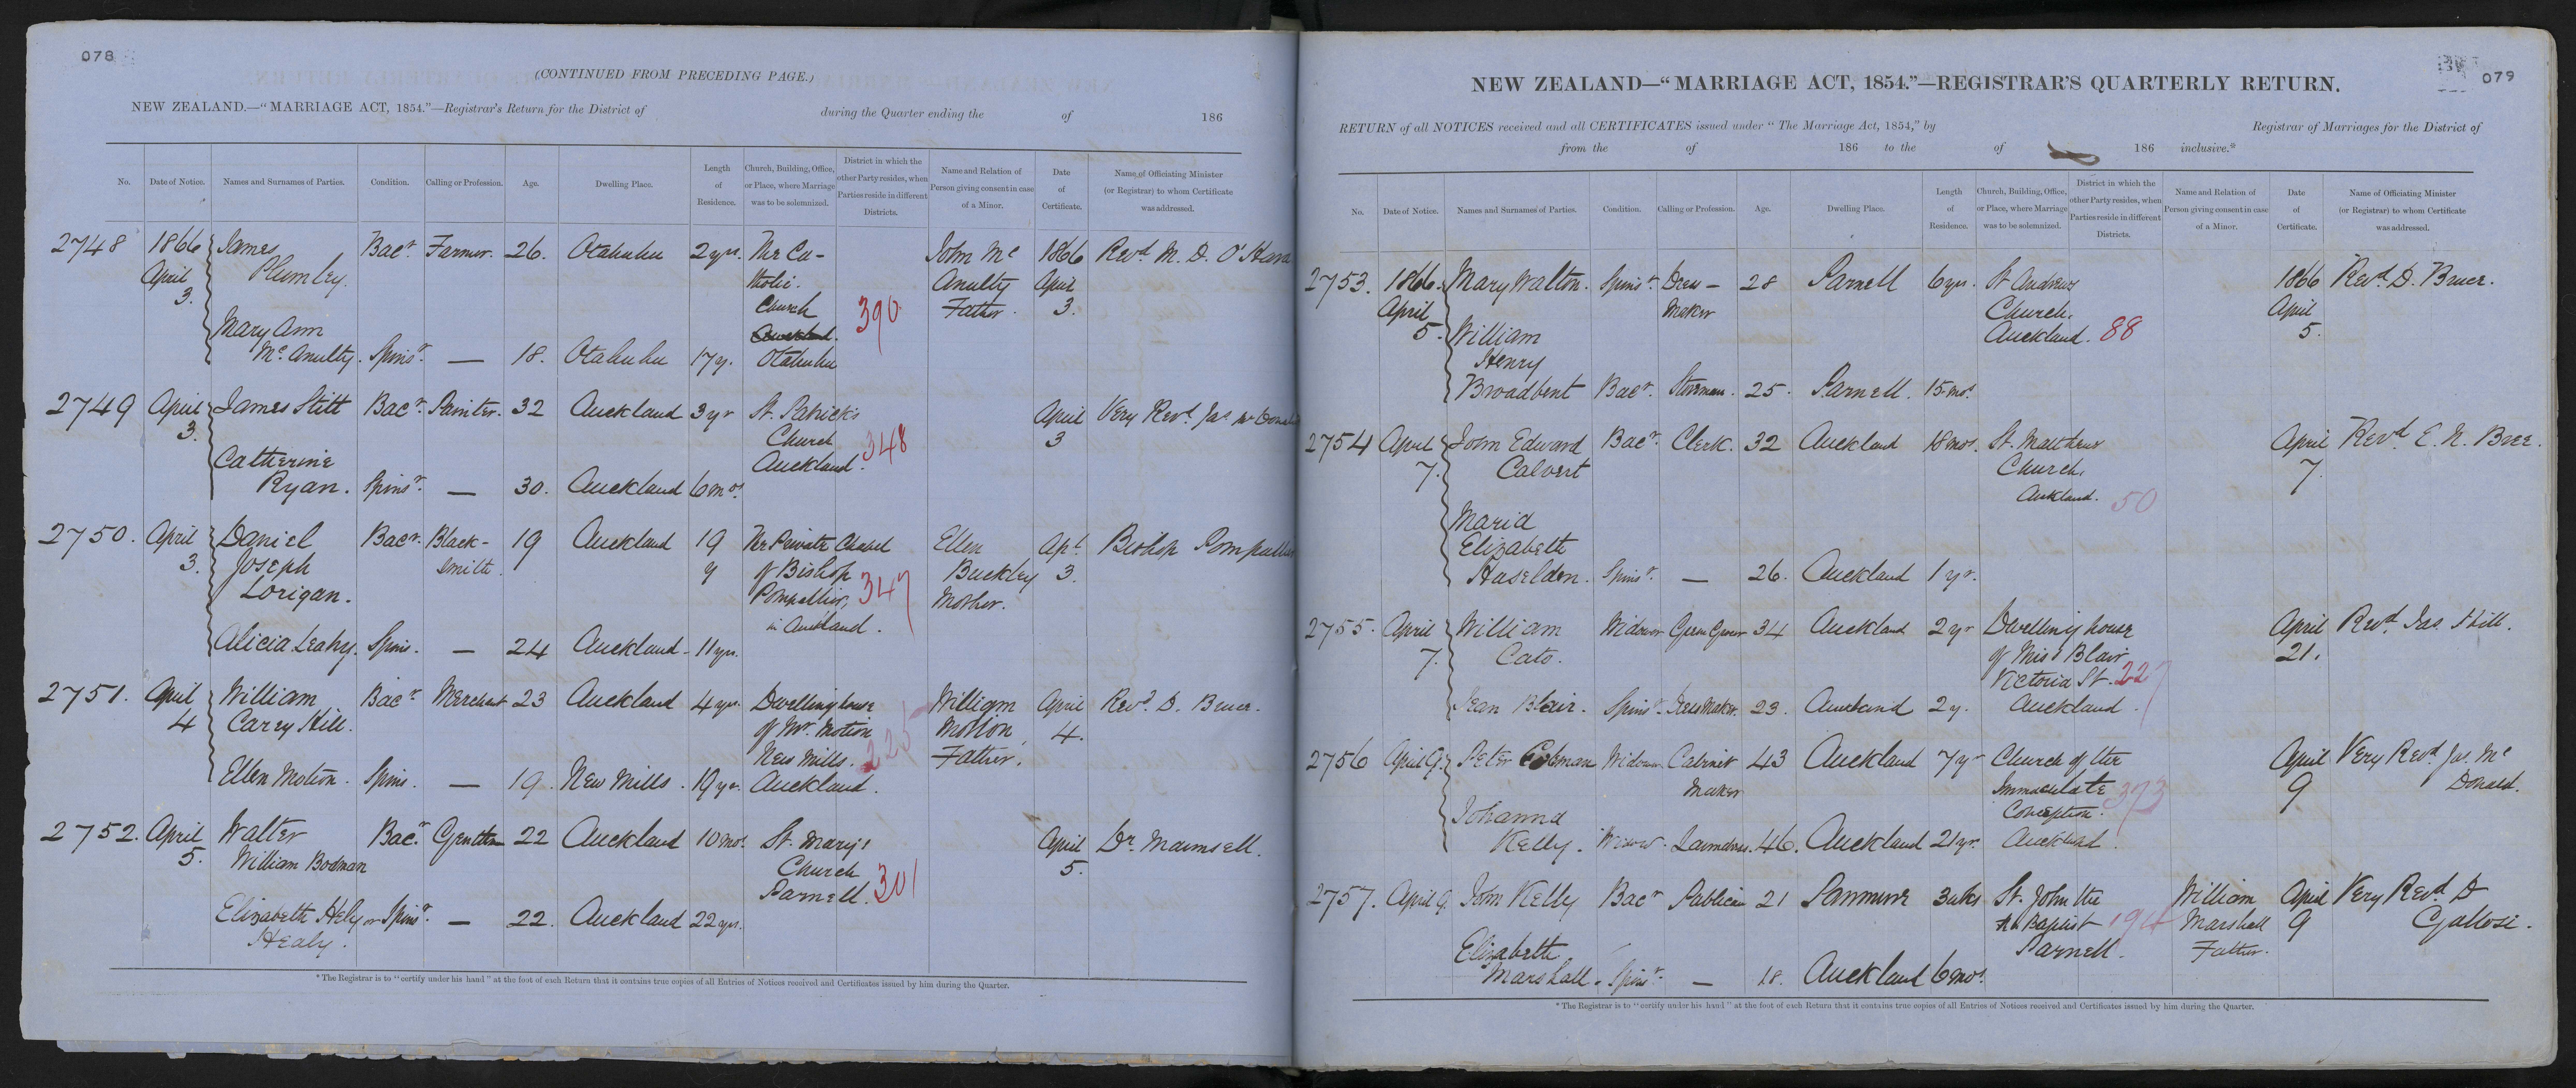 078
(CONTINUED FROM PRECEDING PAGE.)
NEW ZEALAND.—"MARRIAGE ACT, 1854."—Registrar's Return for the District of during the Quarter ending the of 186
No. Date of Notice. Names and Surnames of Parties. Condition. Calling or Profession. Age. Dwelling Place. Length of Residence. Church, Building, Office, or Place, where Marriage was to be solemnized. District in which the other Party resides, when Parties reside in different Districts. Name and Relation of Person giving consent in case of a Minor. Date of Certificate. Name of Officiating Minister (or Registrar) to whom Certificate was addressed.
2748 1866 James Bacr. Farmer. 26. Otahuhu 2 yrs. The Ca- John Mc 1866 Revd. M. D. O'Hara
April Plumley. tholic Anulty April
3. Church 390 Father. 3.
Mary Ann Auckland.
Mc Anulty. Spinsr. — 18. Otahuhu 17 y. Otahuhu
2749 April James Stitt Bacr. Painter. 32 Auckland 3 yr St. Patrick's April Very Revd. Jas Mc Donald
3. Church 348 3
Catherine Auckland.
Ryan. Spinsr. — 30. Auckland 6 mos.
2750. April Daniel Bacr. Black- 19 Auckland 19 The Private Chapel Ellen Apl. Bishop Pompallier
3. Joseph smith. y of Bishop 347 Buckley 3.
Lorigan. Pompallier, Mother.
in Auckland.
Alicia Leahy. Spins. — 24 Auckland - 11 yrs.
2751. April William Bacr. Merchant 23 Auckland 4 yrs. Dwelling house William April Revd. D. Bruce.
4 Carry Hill. of Mr. Motion 225 Motion 4.
New Mills. Father.
Ellen Motion. Spins. — 19. New Mills. 19 yr. Auckland.
2752. April Walter Bacr. Gentlem 22 Auckland 10 mos. St. Mary's April Dr. Maunsell.
5. William Bodman Church 5.
Parnell. 301
Elizabeth Hely or Spinsr. — 22. Auckland 22 yrs.
Healy.
* The Registrar is to "certify under his hand" at the foot of each Return that it contains true copies of all Entries of Notices received and Certificates issued by him during the Quarter.
079
NEW ZEALAND—"MARRIAGE ACT, 1854."—REGISTRAR'S QUARTERLY RETURN.
RETURN of all NOTICES received and all CERTIFICATES issued under "The Marriage Act, 1854," by Registrar of Marriages for the District of
from the of 186 to the of 186 inclusive.*
No. Date of Notice. Names and Surnames of Parties. Condition. Calling or Profession. Age. Dwelling Place. Length of Residence. Church, Building, Office, or Place, where Marriage was to be solemnized. District in which the other Party resides, when Parties reside in different Districts. Name and Relation of Person giving consent in case of a Minor. Date of Certificate. Name of Officiating Minister (or Registrar) to whom Certificate was addressed.
2753. 1866. Mary Walton. Spinsr. Dress- 28 Parnell 6 yrs. St Andrews 1866 Revd. D. Bruce.
April Maker Church. April
5. William Auckland. 88 5.
Henry
Broadbent Bacr. Storeman. 25. Parnell. 15 mos.
2754 April John Edward Bacr. Clerk. 32 Auckland 18 mos. St. Matthews April Revd. E. N. Bree.
7. Calvert Church. 7.
Auckland. 50
Maria
Elizabeth
Haselden. Spinsr. — 26. Auckland 1 yr.
2755. April William Widower Green Grocer 34 Auckland 2 yr Dwelling house April Revd. Jas. Hill.
7. Cato. of Miss Blair 21.
Victoria St. 227
Jean Blair. Spinsr. Dress Maker. 23. Auckland 2 y. Auckland.
2756 April 9. Peter Widower Cabinet 43 Auckland 7 yr Church of the April Very Revd. Jas. Mc
Maker Immaculate 373 9 Donald.
Johanna Conception.
Kelly. Widow. Laundress. 46. Auckland 21 yr. Auckland.
2757. April 9. John Kelly Bacr Publican 21 Panmure 3 wks St. John the William April Very Revd. D
Baptist 194 Marshall 9 Gallosi.
Elizabeth Parnell. Father.
Marshall. Spinsr. — 18. Auckland 6 mos.
* The Registrar is to "certify under his hand" at the foot of each Return that it contains true copies of all Entries of Notices received and Certificates issued by him during the Quarter.